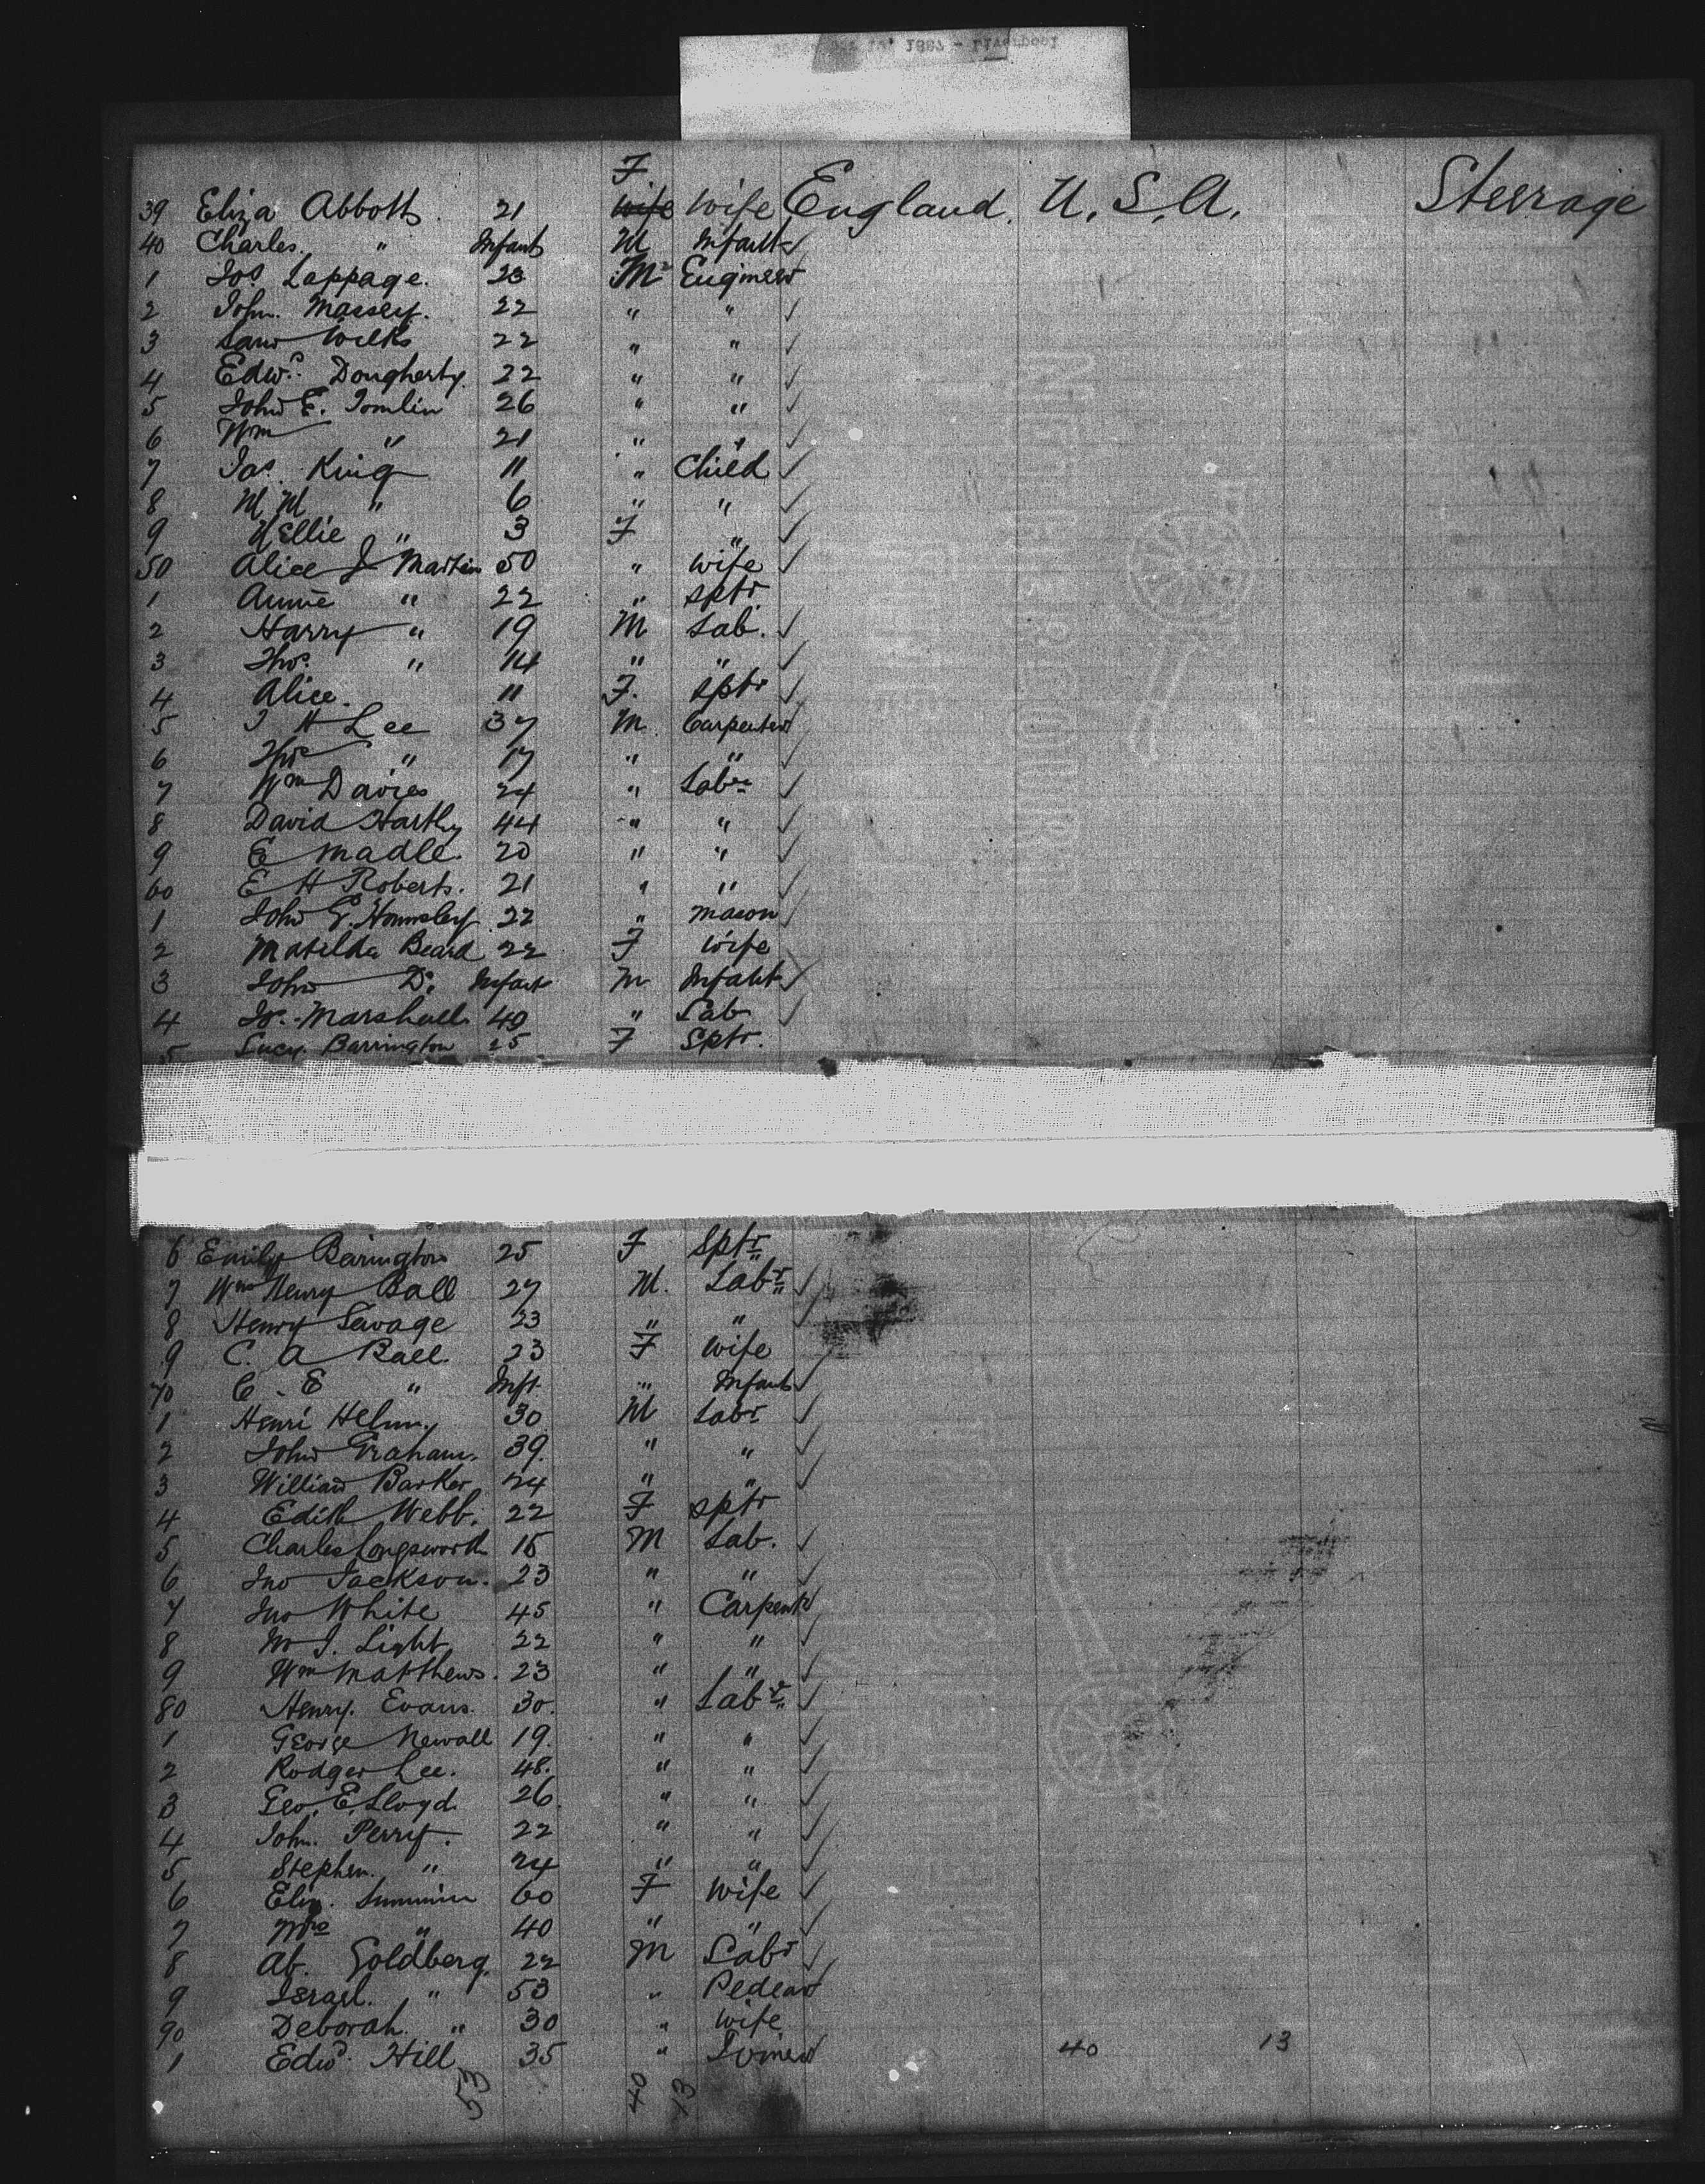 1887 - Liverpool
F
39 Eliza Abbott 21 wife wife England. U.S.A. Steerage
40 Charles " Infant M Infant
1 Jos Lappage. 23 M Engineer
2 John. Massey. 22 " "
3 Sam Wilks 22 " "
4 Edwd. Dougherty. 22 " "
5 John E. Tomlin 26 " "
6 Wm " 21 " "
7 Jas. King 11 " Child
8 M M " 6 " "
9 Nellie " 3 F "
50 Alice J Martin 50 " wife
1 Annie " 22 " sptr
2 Harry " 19 M Lab.
3 Thos. " 14 " "
4 Alice. 11 F. sptr
5 J H Lee 37 M. Carpenter
6 Thos " 17 " "
7 Wm Davies 24 " Labr
8 David Hartley 44 " "
9 E Madle. 20 " "
60 E H Roberts. 21 " "
1 John G. Hounsley 22 " mason
2 Matilda Beard 22 F wife
3 John Do Infant M Infant
4 Jos. Marshall 40 " Lab
5 Lucy. Barrington 25 F Sptr.
6 Emily Barington 25 F Sptr
7 Wm Henry Ball 27 M. Labr
8 Henry Savage 23 " "
9 C. A Ball. 23 F wife
70 C. E " Inft. " Infant
1 Henri Helm 30 M Labr
2 John Graham. 39. " "
3 William Barker 24 " "
4 Edith Webb. 22 F sptr
5 Charles Longsworth 15 M Lab.
6 Jno Jackson. 23 " "
7 Jno White 45 " Carpentr
8 Light 22 " "
9 Wm Matthews. 23 " "
80 Henry. Evans. 30. " Labr
1 George Newall 19. " "
2 Rodger Lee. 48. " "
3 Geo. E. Lloyd 26. " "
4 John. Perry. 22 " "
5 Stephen. " 24 " "
6 Eliz. 60 F Wife
7 Mrs " 40 " "
8 Ab. Goldberg. 22 M Labr
9 Israel. " 53 " Pedlar
90 Deborah. " 30 " wife
1 Edwd. Hill 35 " Joiner 40 13
53 40 13